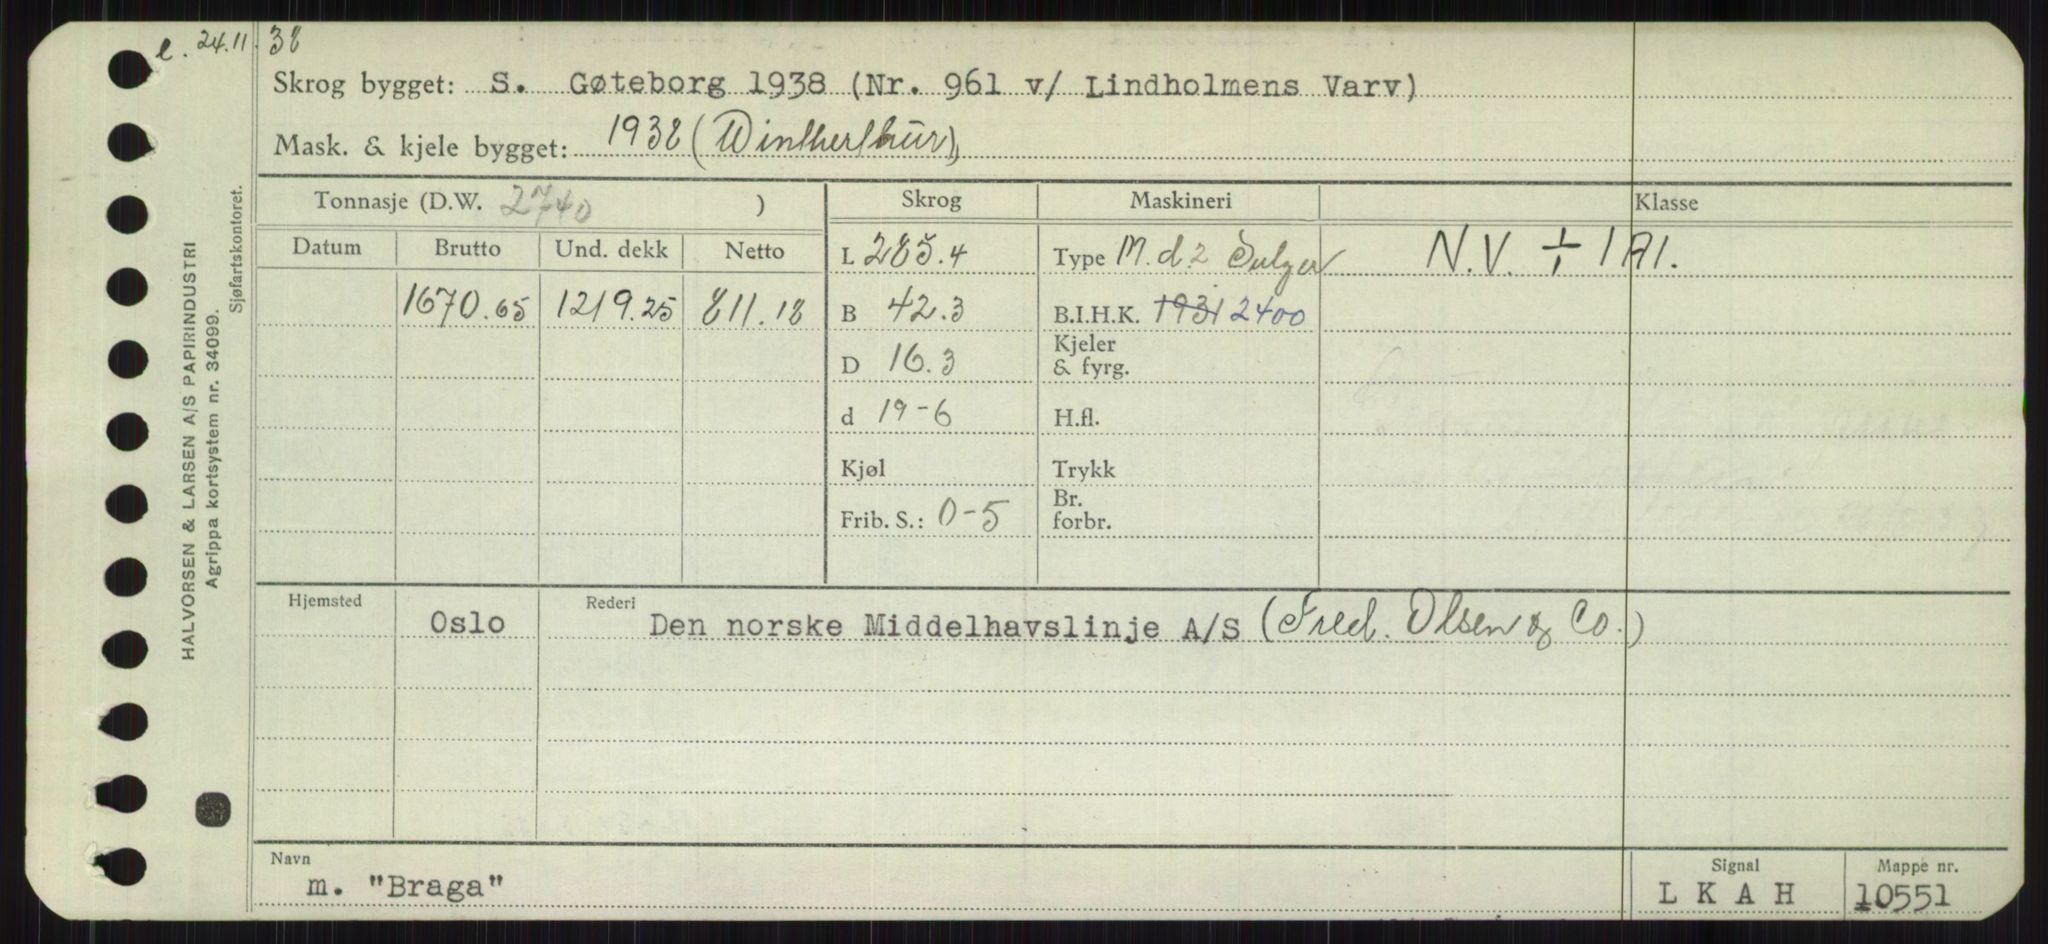 e. 24.11.38
Skrog bygget: S. Gøteborg 1938 (Nr. 961 v/ Lindholmens Varv)
Mask. & kjele bygget: 1938 (Wintherthur)
Tonnasje (D.W. 2740 ) Skrog Maskineri Klasse
Datum Brutto Und. dekk Netto L 285.4 Type M. d 2 Sulzer N.V. + 1A1.
1670.65 1219.25 811.18 B 42.3 B.I.H.K. 1931 2400
D 16.3 Kjeler & fyrg.
d 19-6 H.fl.
Kjøl Trykk
Frib. S.: 0-5 Br. forbr.
Hjemsted Rederi
Oslo Den norske Middelhavslinje A/S (Fred. Olsen & Co.)
Navn Signal Mappe nr.
m. "Braga" L K A H 10551
HALVORSEN & LARSEN A/S PAPIRINDUSTRI
Agrippa kortsystem nr. 34099.
Sjøfartskontoret.